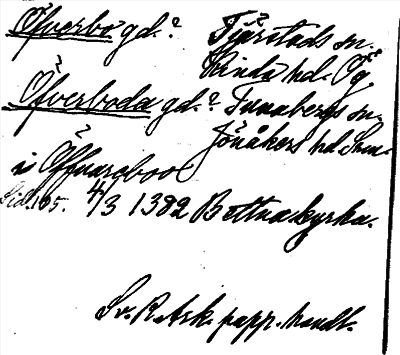 Öfverbo gd.? Tjärstads sn.
Kinda hd. Ög.
Öfverboda gd.? Tunabergs sn.
Jönåkers hd. Söm.
i Öffuarboo
Sid. 105. 4/3 1382 Bettna kyrka.
Sv. R. Ark. papp. handl.